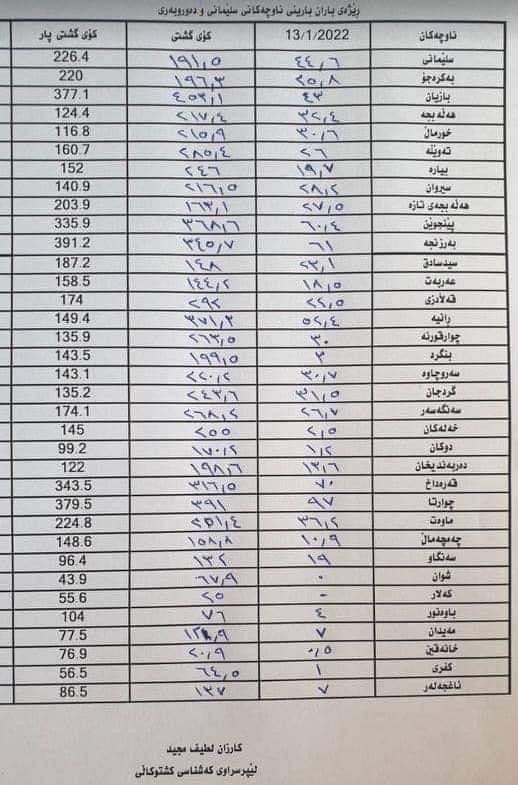 ڕێژەی باران بارینی ناوچەکانی سلێمانی و دەوروبەری
ناوچەکان 13/1/2022 کۆی گشتی کۆی گشتی پار
سلێمانی ٤٤,٦ ١٩١,٥ 226.4
بەکرەجۆ ٢٥,٨ ١٩٦,٣ 220
بازیان ٤٣ ٤٥٣,١ 377.1
هەڵەبجە ٣٢,٤ ٢١٧,٤ 124.4
خورماڵ ٣٠,٦ ٢١٥,٩ 116.8
تەوێڵە ٢٦ ٢٨٥,٤ 160.7
بیارە ١٩,٧ ٢٤٦ 152
سیروان ٢٨,٢ ٢١٦,٥ 140.9
هەڵەبجەی تازە ٢٧,٥ ١٦٣,١ 203.9
پێنجوێن ٦٠,٤ ٣٦٨,٦ 335.9
بەرزنجە ٦١ ٣٤٥,٧ 391.2
سیدسادق ٢٣,١ ١٤٨ 187.2
عەربەت ١٨,٥ ١٤٤,٢ 158.5
قەڵادزی ٢٢,٥ ٢٩٢ 174
رانیە ٥٢,٤ ٣٧١,٢ 149.4
چوارقورنە ٣٠ ٢٦٣,٥ 135.9
بنگرد ٣ ١٩٩,٥ 143.5
سەروچاوە ٣٠,٧ ٢٢٠,٢ 143.1
گردجان ٣١,٥ ٢٤٣,٦ 135.2
سەنگەسەر ٢٦,٧ ٢٦٨,٢ 174.1
خەلەکان ٢,٥ ٢٥٥ 145
دوکان ١,٢ ١٧٠,٢ 99.2
دەربەندیخان ١٣,٦ ١٩٨,٦ 122
قەرەداغ ٧٠ ٣١٦,٥ 343.5
چوارتا ٩٧ ٣٩١ 379.5
ماوەت ٣٦,٢ ٢٥١,٤ 224.8
چەمچەماڵ ١٠,٩ ١٥٨,٨ 148.6
سەنگاو ١٩ ١٣٢ 96.4
شوان ٠ ٦٧,٩ 43.9
کەلار - ٢٥ 55.6
باوەنور ٤ ٧٦ 104
مەیدان ٧ 77.5
خانەقین ٠,٥ ٢٠,٩ 76.9
کفری ١ ٦٤,٥ 56.5
ئاغجەلەر ٧ ١٣٧ 86.5
کارزان لطیف مجید
لێپرسراوی کەشناسی کشتوکاڵی